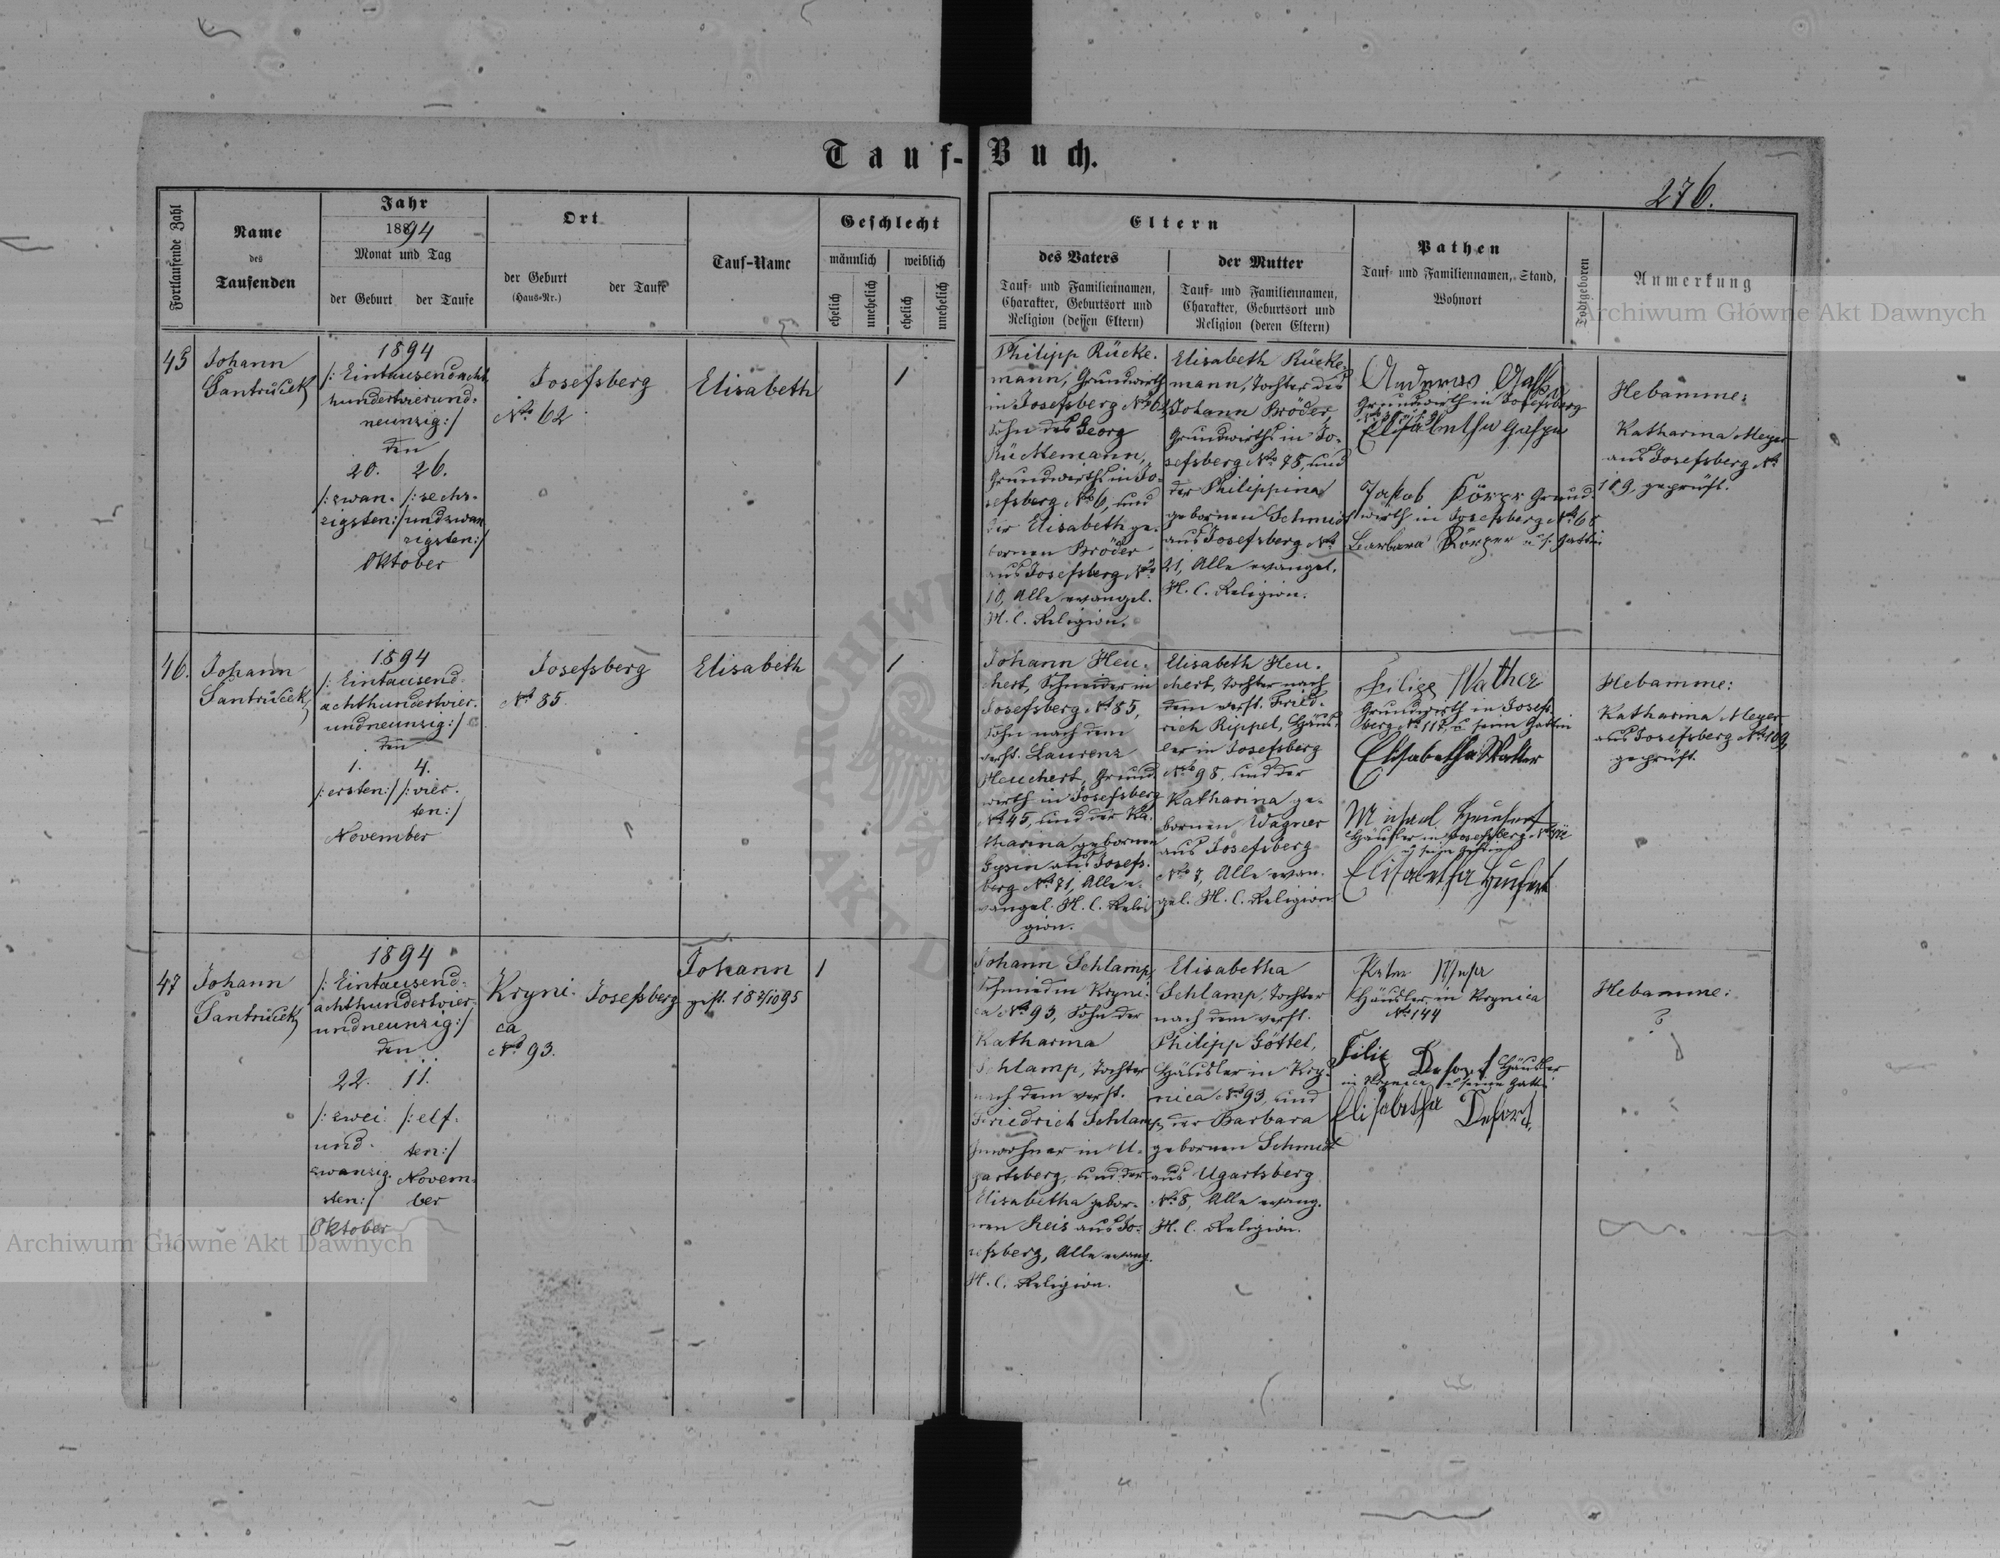 Tauf-Buch.
276.
Fortlaufende Zahl
Name
des
Taufenden
Jahr
1894
Monat und Tag
der Geburt
der Taufe
Ort
der Geburt
(Haus-Nr.)
der Taufe
Tauf-Name
Geschlecht
männlich
weiblich
ehelich
unehelich
ehelich
unehelich
Eltern
des Vaters
Tauf- und Familiennamen,
Charakter, Geburtsort und
Religion (dessen Eltern)
der Mutter
Tauf- und Familiennamen,
Charakter, Geburtsort und
Religion (deren Eltern)
Pathen
Tauf- und Familiennamen, Stand,
Wohnort
Todtgeboren
Anmerkung
45
Johann
Santrůček
1894
/: Eintausendacht
hundertvierund-
neunzig :/
den
20. 26.
/: zwan- /: sechs-
zigsten :/ undzwan
zigsten :/
Oktober
Josefsberg
No 62
Elisabeth
1
Philipp Rücke-
mann, Grundwirth
in Josefsberg No 62
Sohn des Georg
Rückemann,
Grundwirths in Jo-
sefsberg No 6, und
der Elisabeth ge-
bornen Bröder
aus Josefsberg No
10, Alle evangel.
H. C. Religion.
Elisabeth Rücke-
mann, Tochter des
Johann Bröder,
Grundwirths in Jo-
sefsberg No 78, und
der Philippina
gebornen Schmidt
aus Josefsberg No
21, Alle evangel.
H. C. Religion.
Andreas
Grundwirth in Josefsberg
Elisabetha
Jakob Körper Grund-
wirth in Josefsberg No 68
Barbara Körper u. s. Gattin
Hebamme:
Katharina Meyer
aus Josefsberg No
109, geprüft.
46.
Johann
Santrůček
1894
/: Eintausend-
achthundertvier-
undneunzig :/
den
1. 4.
/: ersten :/ /: vier-
ten :/
November
Josefsberg
No 85.
Elisabeth
1
Johann Heu-
chert, Schneider in
Josefsberg No 85,
Sohn nach dem
verst. Laurenz
Heuchert, Grund
wirth in Josefsberg
No 45, und der Ka-
tharina gebornen
Gysin aus Josefs-
berg No 71, Alle e-
vangel. H. C. Reli
gion.
Elisabeth Heu-
chert, Tochter nach
dem verst. Fried-
rich Rippel, Häus-
ler in Josefsberg
No 98, und der
Katharina ge-
bornen Wagner
aus Josefsberg
No 7, Alle evan-
gel. H. C. Religion
Filipp
Grundwirth in Josefs-
berg No 117 u seine Gattin
Elisabetha
Häusler in Josefsberg
u seine Gattin
Elisabetha
Hebamme:
Katharina Meyer
aus Josefsberg No 109,
geprüft.
47
Johann
Santrůček
1894
/: Eintausend-
achthundertvier-
undneunzig :/
den
22. 11.
/: zwei /: elf-
und- ten :/
zwanzig- Novem-
sten :/ ber
Oktober
Kryni-
ca
No 93.
Josefsberg
Johann
1
Johann Schlamp,
Schmied in Kryni-
ca No 93, Sohn der
Katharina
Schlamp, Tochter
nach dem verst.
Friedrich Schlamp,
Inwohner in U-
gartsberg, und der
Elisabetha gebor-
nen Reis aus Jo-
sefsberg, Alle evang.
H. C. Religion.
Elisabetha
Schlamp, Tochter
nach dem verst.
Philipp Göttel,
Häusler in Kry-
nica No 93, und
der Barbara
gebornen Schmidt
aus Ugartsberg
No 8, Alle evang.
H. C. Religion.
Häusler in Krynica
No 144
Häusler
in Krynica u seine Gattin
Elisabetha
Hebamme:
?
Archiwum Główne Akt Dawnych
Archiwum Główne Akt Dawnych